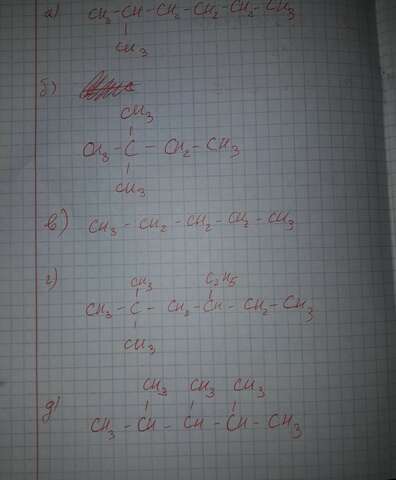 а) CH3-CH-CH2-CH2-CH2-CH3
CH3
б)
CH3
CH3-C-CH2-CH3
CH3
в) CH3-CH2-CH2-CH2-CH3
г) CH3 C2H5
CH3-C-CH2-CH-CH2-CH3
CH3
CH3 CH3 CH3
д) CH3-CH-CH-CH-CH3